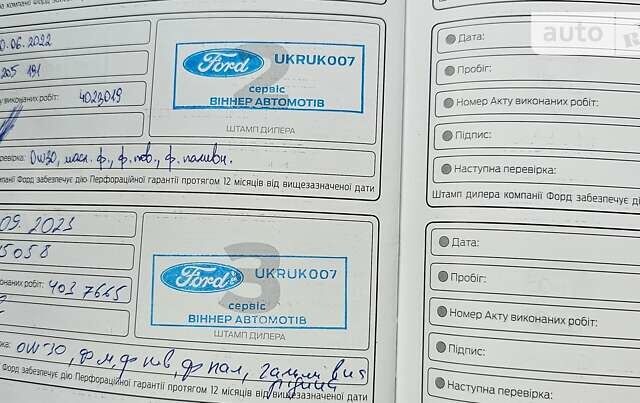 сту компанії Форд забезпечує дію
0.06.2022
205 191
ту виконаних робіт: 4023019
Ford UKRUK007
2
сервіс
ВІННЕР АВТОМОТІВ
ШТАМП ДИЛЕРА
ревірка: 0W30, масл. ф., ф. пов., ф. паливн.
панії Форд забезпечує дію Перфораційної гарантії протягом 12 місяців від вищезазначеної дати
09. 2023
5058
конаних робіт: 4037665
Ford UKRUK007
3
сервіс
ВІННЕР АВТОМОТІВ
ШТАМП ДИЛЕРА
ка: 0W30, ф м, ф пов, ф пал,
рідина
Форд забезпечує дію Перфораційної гарантії протягом 12 місяців від вищезазначеної дати
auto RIA
Дата:
Пробіг:
Номер Акту виконаних робіт:
Підпис:
Наступна перевірка:
Штамп дилера компанії Форд забезпечує ді
Дата:
Пробіг:
Номер Акту виконаних робіт:
Підпис:
Наступна перевірка: